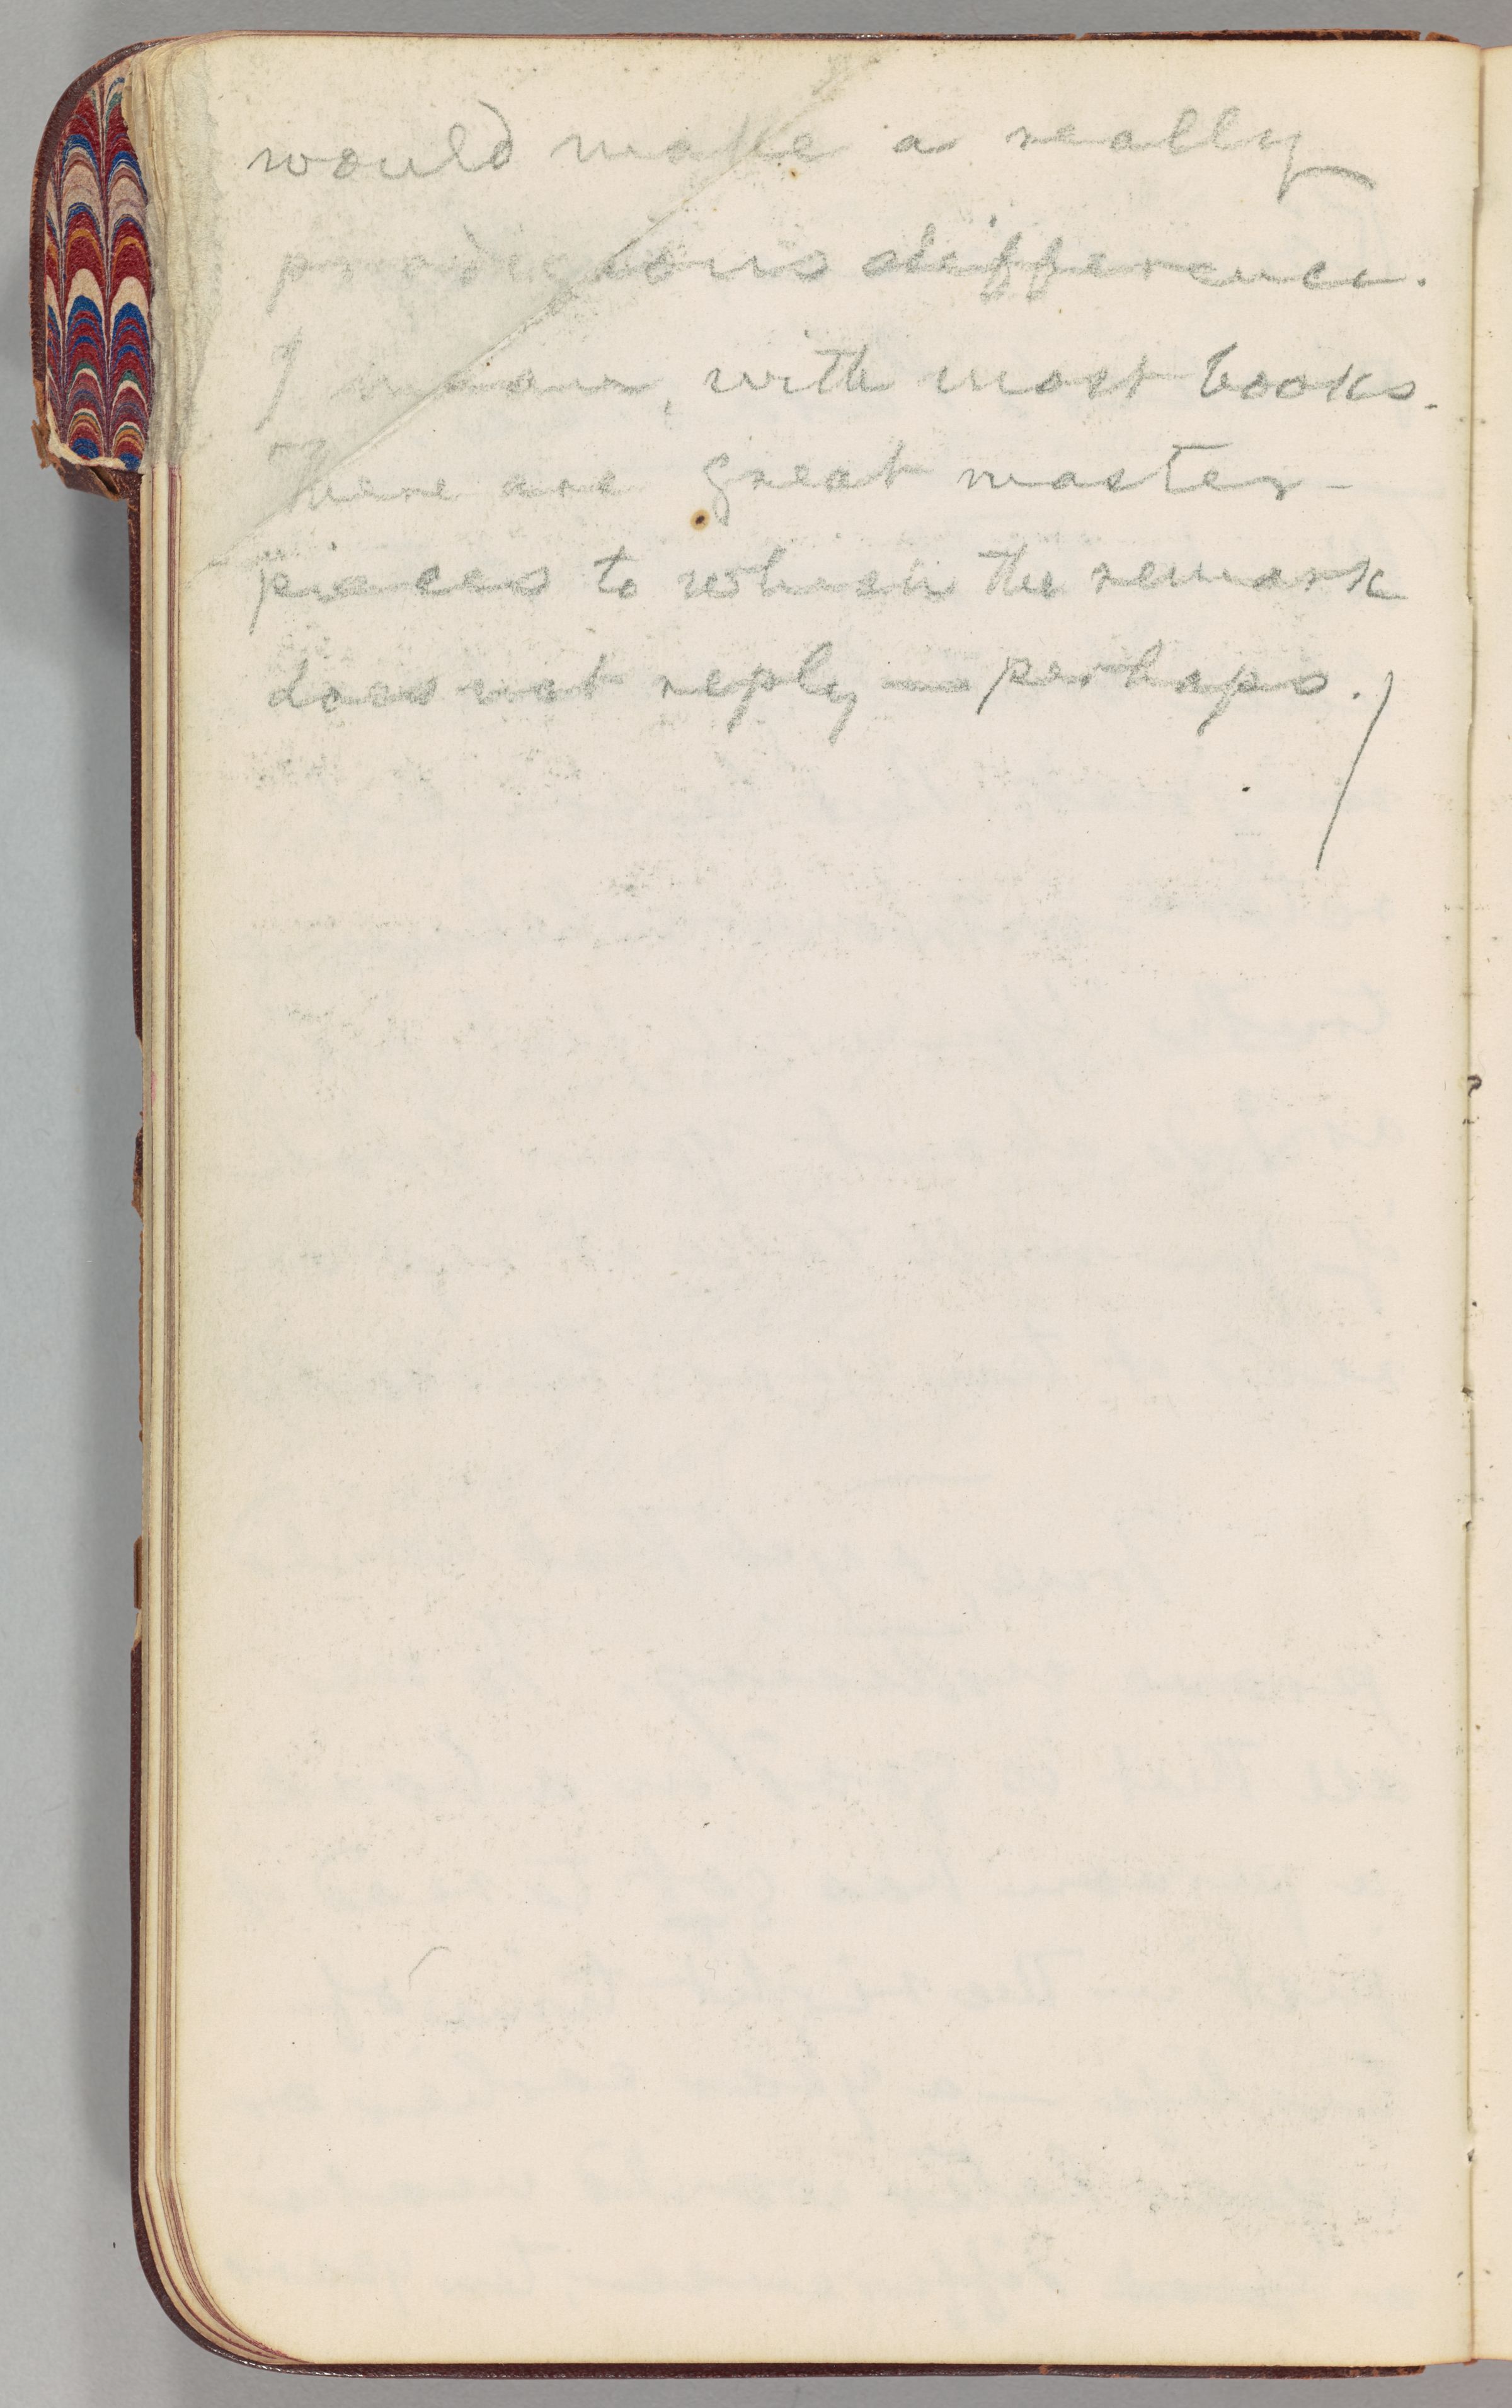 would make a really
prodigious difference.
I mean, with most books.
There are great master-
pieces to which the remark
does not reply — perhaps.